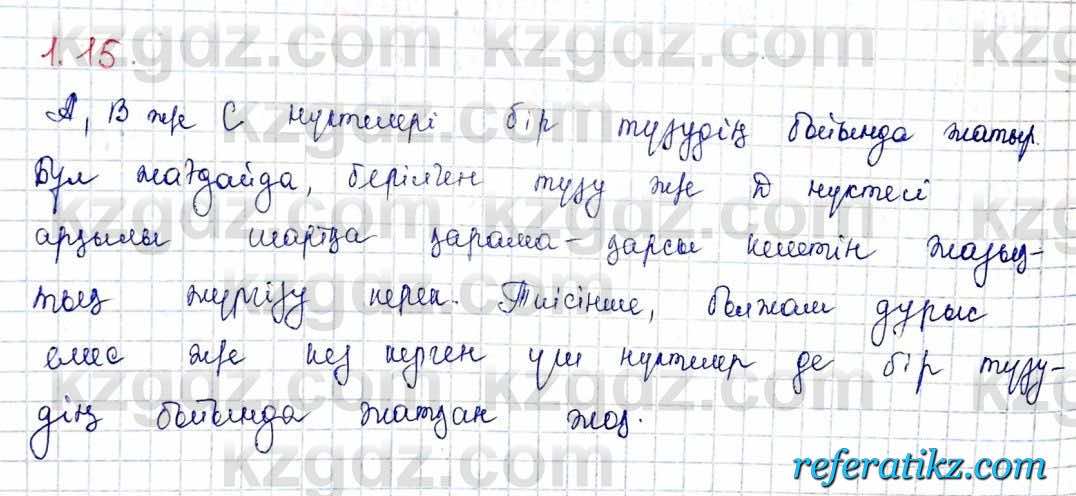 1.15.
А, В және С нүктелері бір түзудің бойында жатыр.
Бұл жағдайда, берілген түзу және D нүктесі
арқылы шартқа қарама-қарсы келетін жазық-
тық жүргізу керек. Тиісінше, болжам дұрыс
емес және кез келген үш нүктелер де бір түзу-
дің бойында жатқан жоқ.
kzgdz.com
referatikz.com